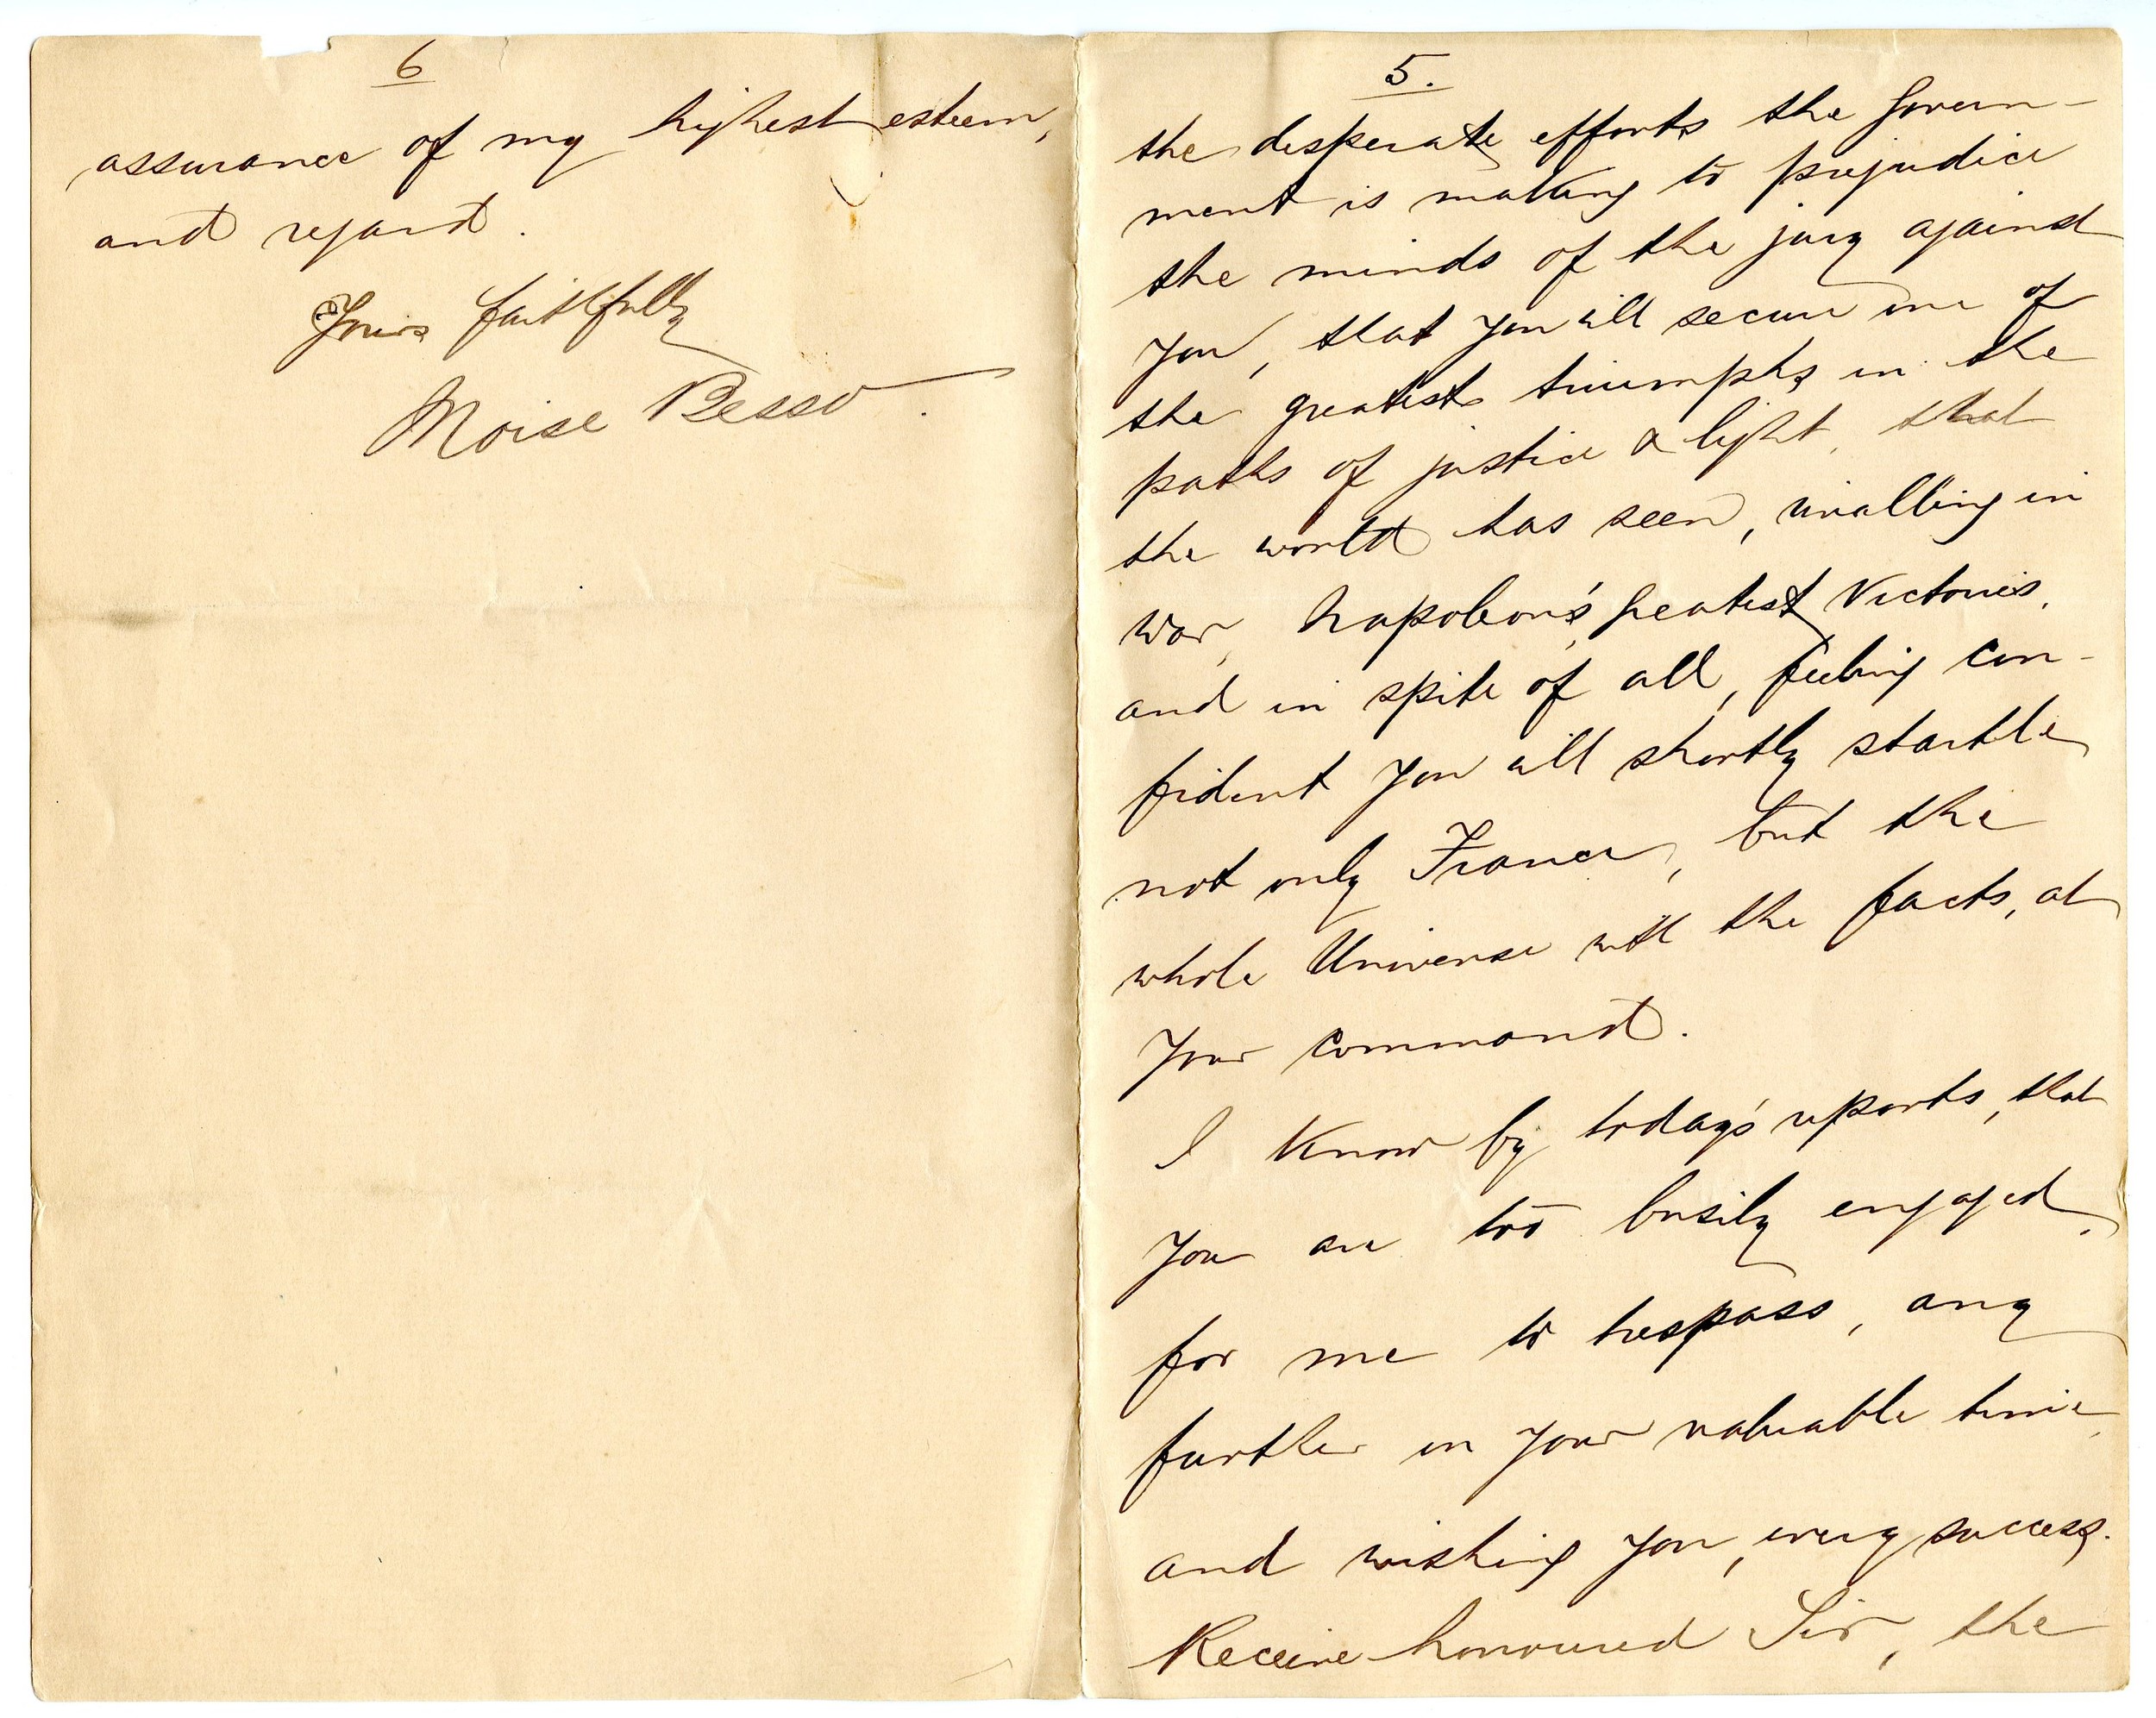 5.
the desperate efforts the Govern-
ment is making to prejudice
the minds of the jury against
you, that you will secure one of
the greatest triumphs in the
paths of justice & light, that
the world has seen, rivalling in
war, Napoleon's greatest Victories,
and in spite of all, feeling con-
fident you will shortly startle
not only France, but the
whole Universe with the facts, at
your command.
I know by today's reports, that
you are too busily engaged,
for me to trespass, any
further on your valuable time,
and wishing you, every success.
Receive honoured Sir, the
6
assurance of my highest esteem,
and regard.
Yours faithfully
Moise Besso.